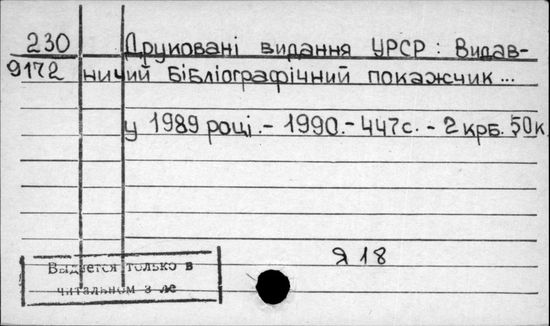 230 Друковані видання УРСР : Видав-
9172 ничий бібліографічний покажчик ...
у 1989 році. - 1990. - 447с. - 2 крб. 50к
Я 18
Выдается только в
читальном з ле